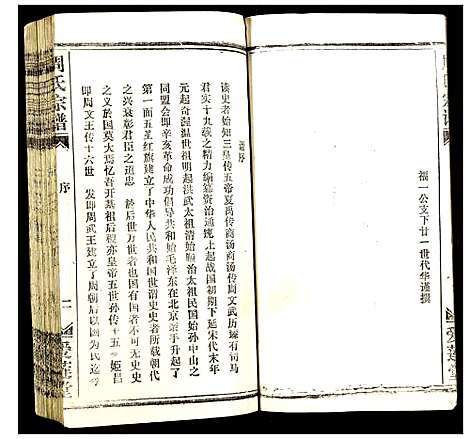 福一公支下廿一世代华谨撰
爱莲堂
谱序
读史者始知三皇传五帝夏禹传商汤商汤传周文武历琢有司马
君实十九载之精力编纂资治通鉴上起战国初期下延宋代末年
元起奇渥温世祖洪明起洪武太祖清起顺治太祖民国始孙中山之
同盟会即辛亥革命成功倡导共和始毛泽东在北京亲手升起了
第一面五星红旗建立了中华人民共和国世谓史史者所载朝代
之兴衰彰君臣之道忠 於后世万世者也国有国者不可无史史
之义於国莫大焉忆吾开基祖后稷亦皇帝五世孙传十五 姬昌
即周文王传十六世 发即周武王建立了周朝后以国为氏迄今
周氏宗谱
序
二
爱莲堂